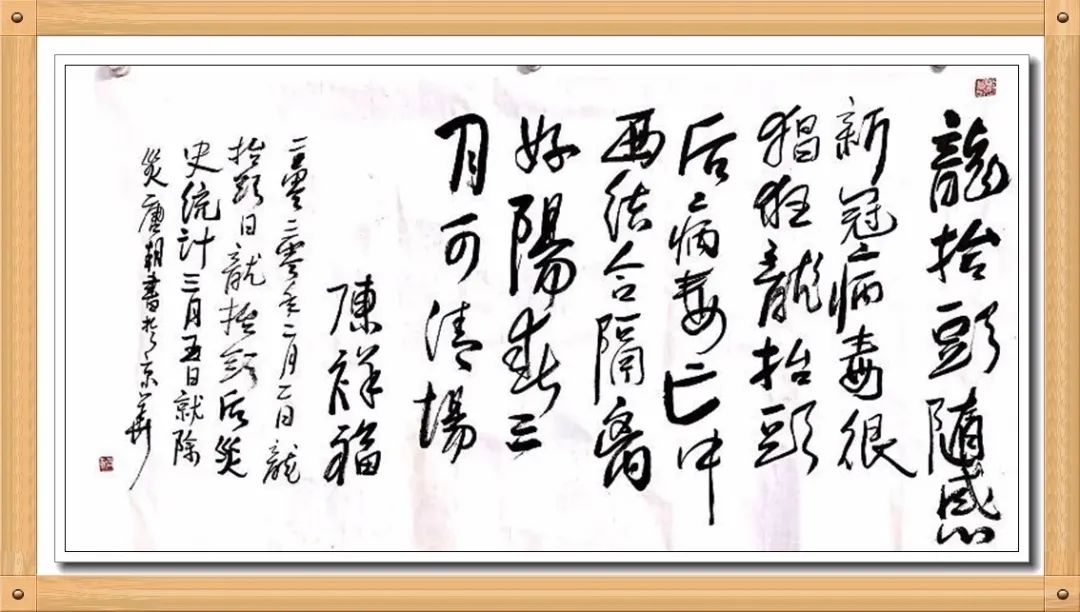 龍抬頭随感
新冠病毒很
猖狂龍抬頭
后病毒亡中
西结合隔离
好陽春三
月可清場
陳祥福
二零二零年二月二日龍
抬頭日龍抬頭后災
史统计三月五日就除
災唐朝書於京華